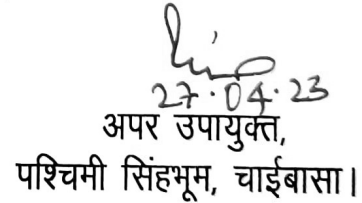 27.04.23
अपर उपायुक्त,
पश्चिमी सिंहभूम, चाईबासा।